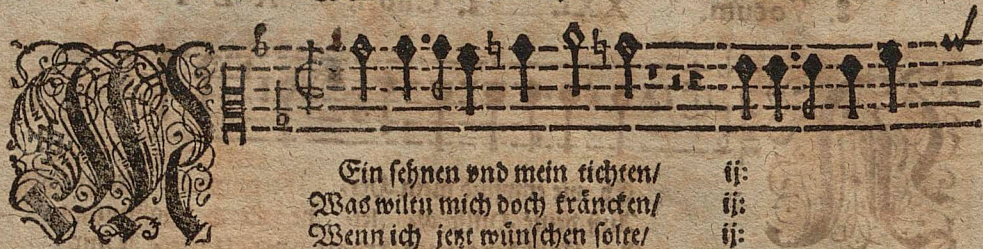 MEin sehnen vnd mein tichten/ ij:
Was wiltu mich doch kräncken/ ij:
Wenn ich jetzt wünschen solte/ ij: